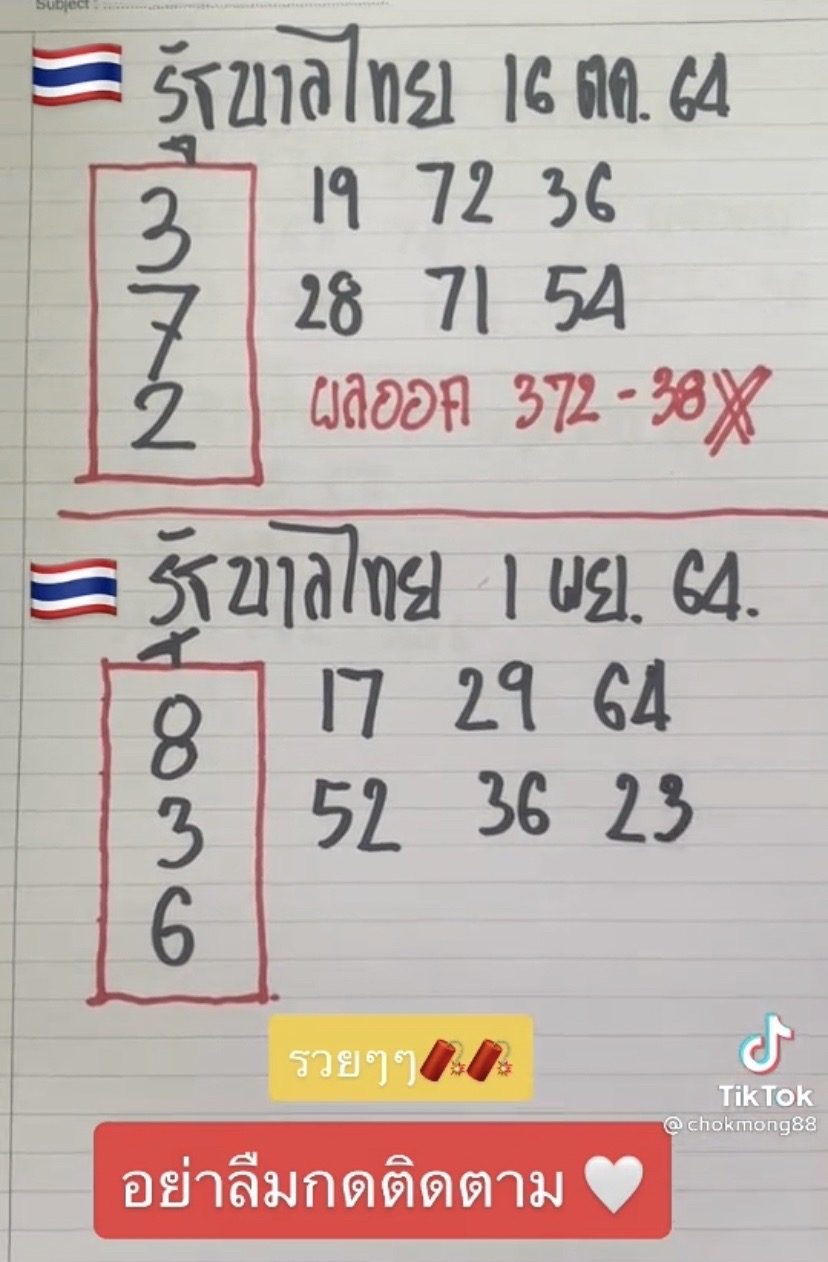 Subject :
รัฐบาลไทย 16 ตค. 64
3
7
2
19 72 36
28 71 54
ผลออก 372 - 38
รัฐบาลไทย 1 พย. 64.
8
3
6
17 29 64
52 36 23
รวยๆๆ
อย่าลืมกดติดตาม
TikTok
@chokmong88